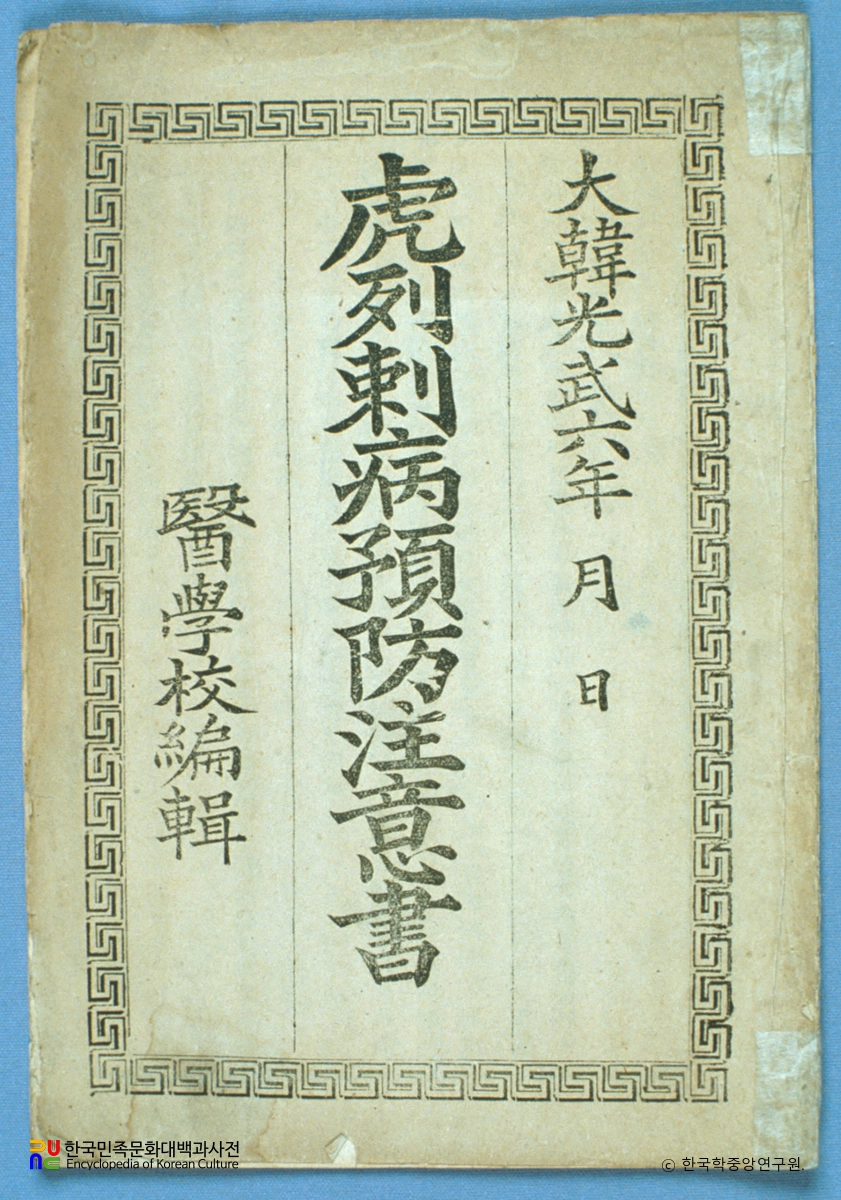 大韓光武六年 月 日
虎列剌病預防注意書
醫學校編輯
한국민족문화대백과사전
Encyclopedia of Korean Culture
ⓒ 한국학중앙연구원.